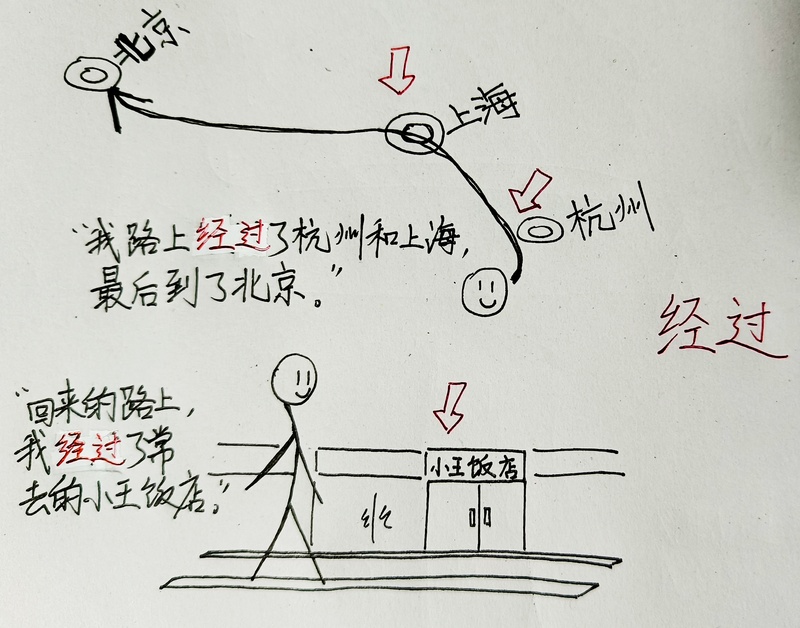 北京
上海
杭州
“我路上经过了杭州和上海,
最后到了北京。”
经过
“回来的路上,
我经过了常
去的小王饭店。”
小王饭店